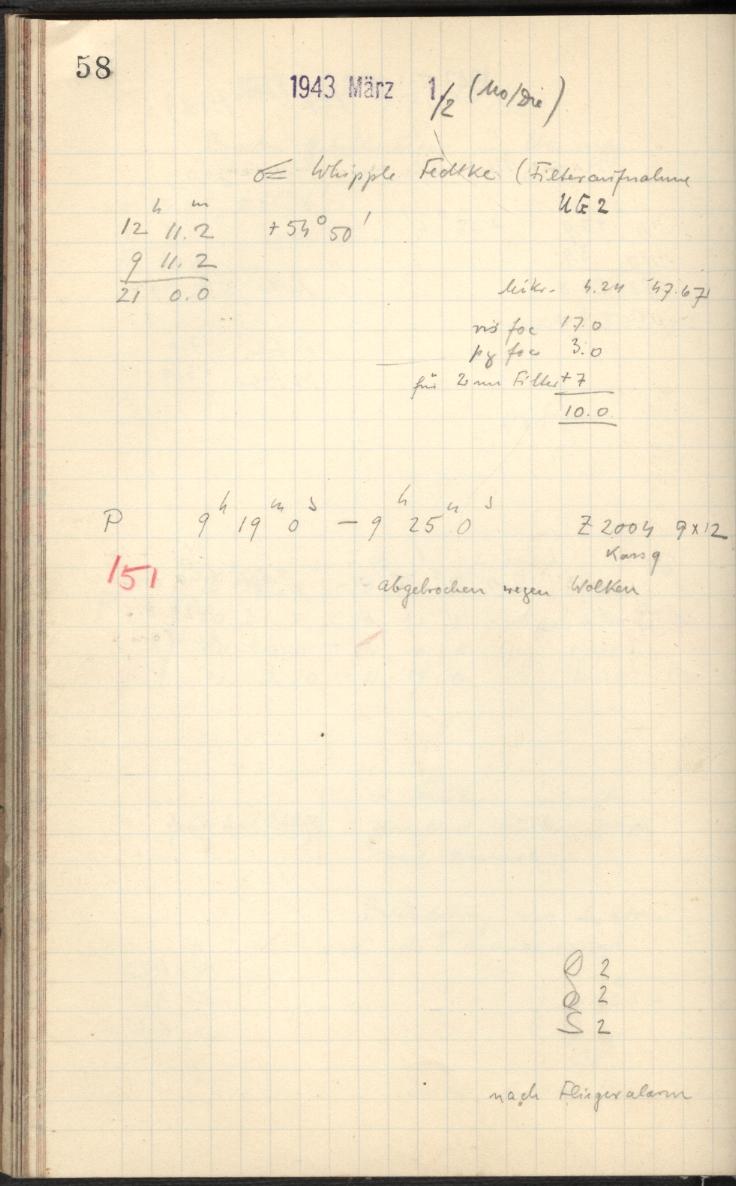 58
1943 März 1./2 (Mo/Die)
☄ Whipple Fedtke (Filteraufnahme
UG 2
h m
12 11.2 +54° 50'
9 11.2
21 0.0
Mikr. 4.24 47.67
vis foc 17.0
pg foc 3.0
für 2mm Filter +7
10.0
P 9h 19m 0s – 9h 25m 0s Z 2004 9x12
151 Kass 9
abgebrochen wegen Wolken
2
2
S 2
nach Fliegeralarm